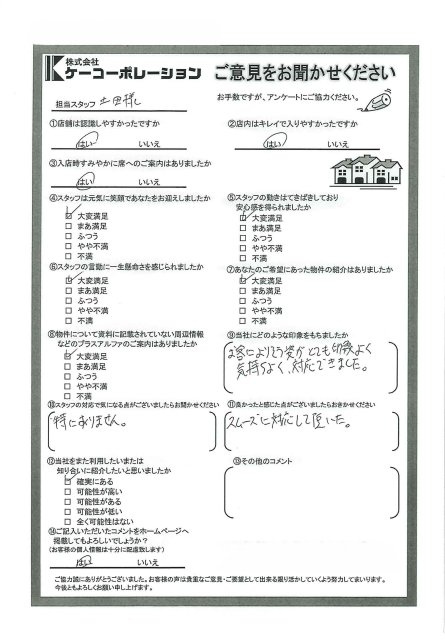 株式会社
ケーコーポレーション
ご意見をお聞かせください
担当スタッフ 土田様
お手数ですが、アンケートにご協力ください。
①店舗は認識しやすかったですか
はい いいえ
②店内はキレイで入りやすかったですか
はい いいえ
③入店時すみやかに席へのご案内はありましたか
はい いいえ
④スタッフは元気に笑顔であなたをお迎えしましたか
☑ 大変満足
□ まあ満足
□ ふつう
□ やや不満
□ 不満
⑤スタッフの動きはてきぱきしており
安心感を得られましたか
☑ 大変満足
□ まあ満足
□ ふつう
□ やや不満
□ 不満
⑥スタッフの言動に一生懸命さを感じられましたか
☑ 大変満足
□ まあ満足
□ ふつう
□ やや不満
□ 不満
⑦あなたのご希望にあった物件の紹介はありましたか
☑ 大変満足
□ まあ満足
□ ふつう
□ やや不満
□ 不満
⑧物件について資料に記載されていない周辺情報
などのプラスアルファのご案内はありましたか
☑ 大変満足
□ まあ満足
□ ふつう
□ やや不満
□ 不満
⑨当社にどのような印象をもちましたか
お客によりそう姿がとても印象よく
気持ちよく、対応できました。
⑩スタッフの対応で気になる点がございましたらお聞かせください
特にありません。
⑪良かったと感じた点がございましたらおきかせください
スムーズに対応して頂いた。
⑫当社をまた利用したいまたは
知り合いに紹介したいと思いましたか
☑ 確実にある
□ 可能性が高い
□ 可能性がある
□ 可能性が低い
□ 全く可能性はない
⑬その他のコメント
⑭ご記入いただいたコメントをホームページへ
掲載してもよろしいでしょうか?
(お客様の個人情報は十分に配慮致します)
はい いいえ
ご協力誠にありがとうございました。お客様の声は貴重なご意見・ご要望として出来る限り活かしていくよう努力してまいります。
今後ともよろしくお願い申し上げます。